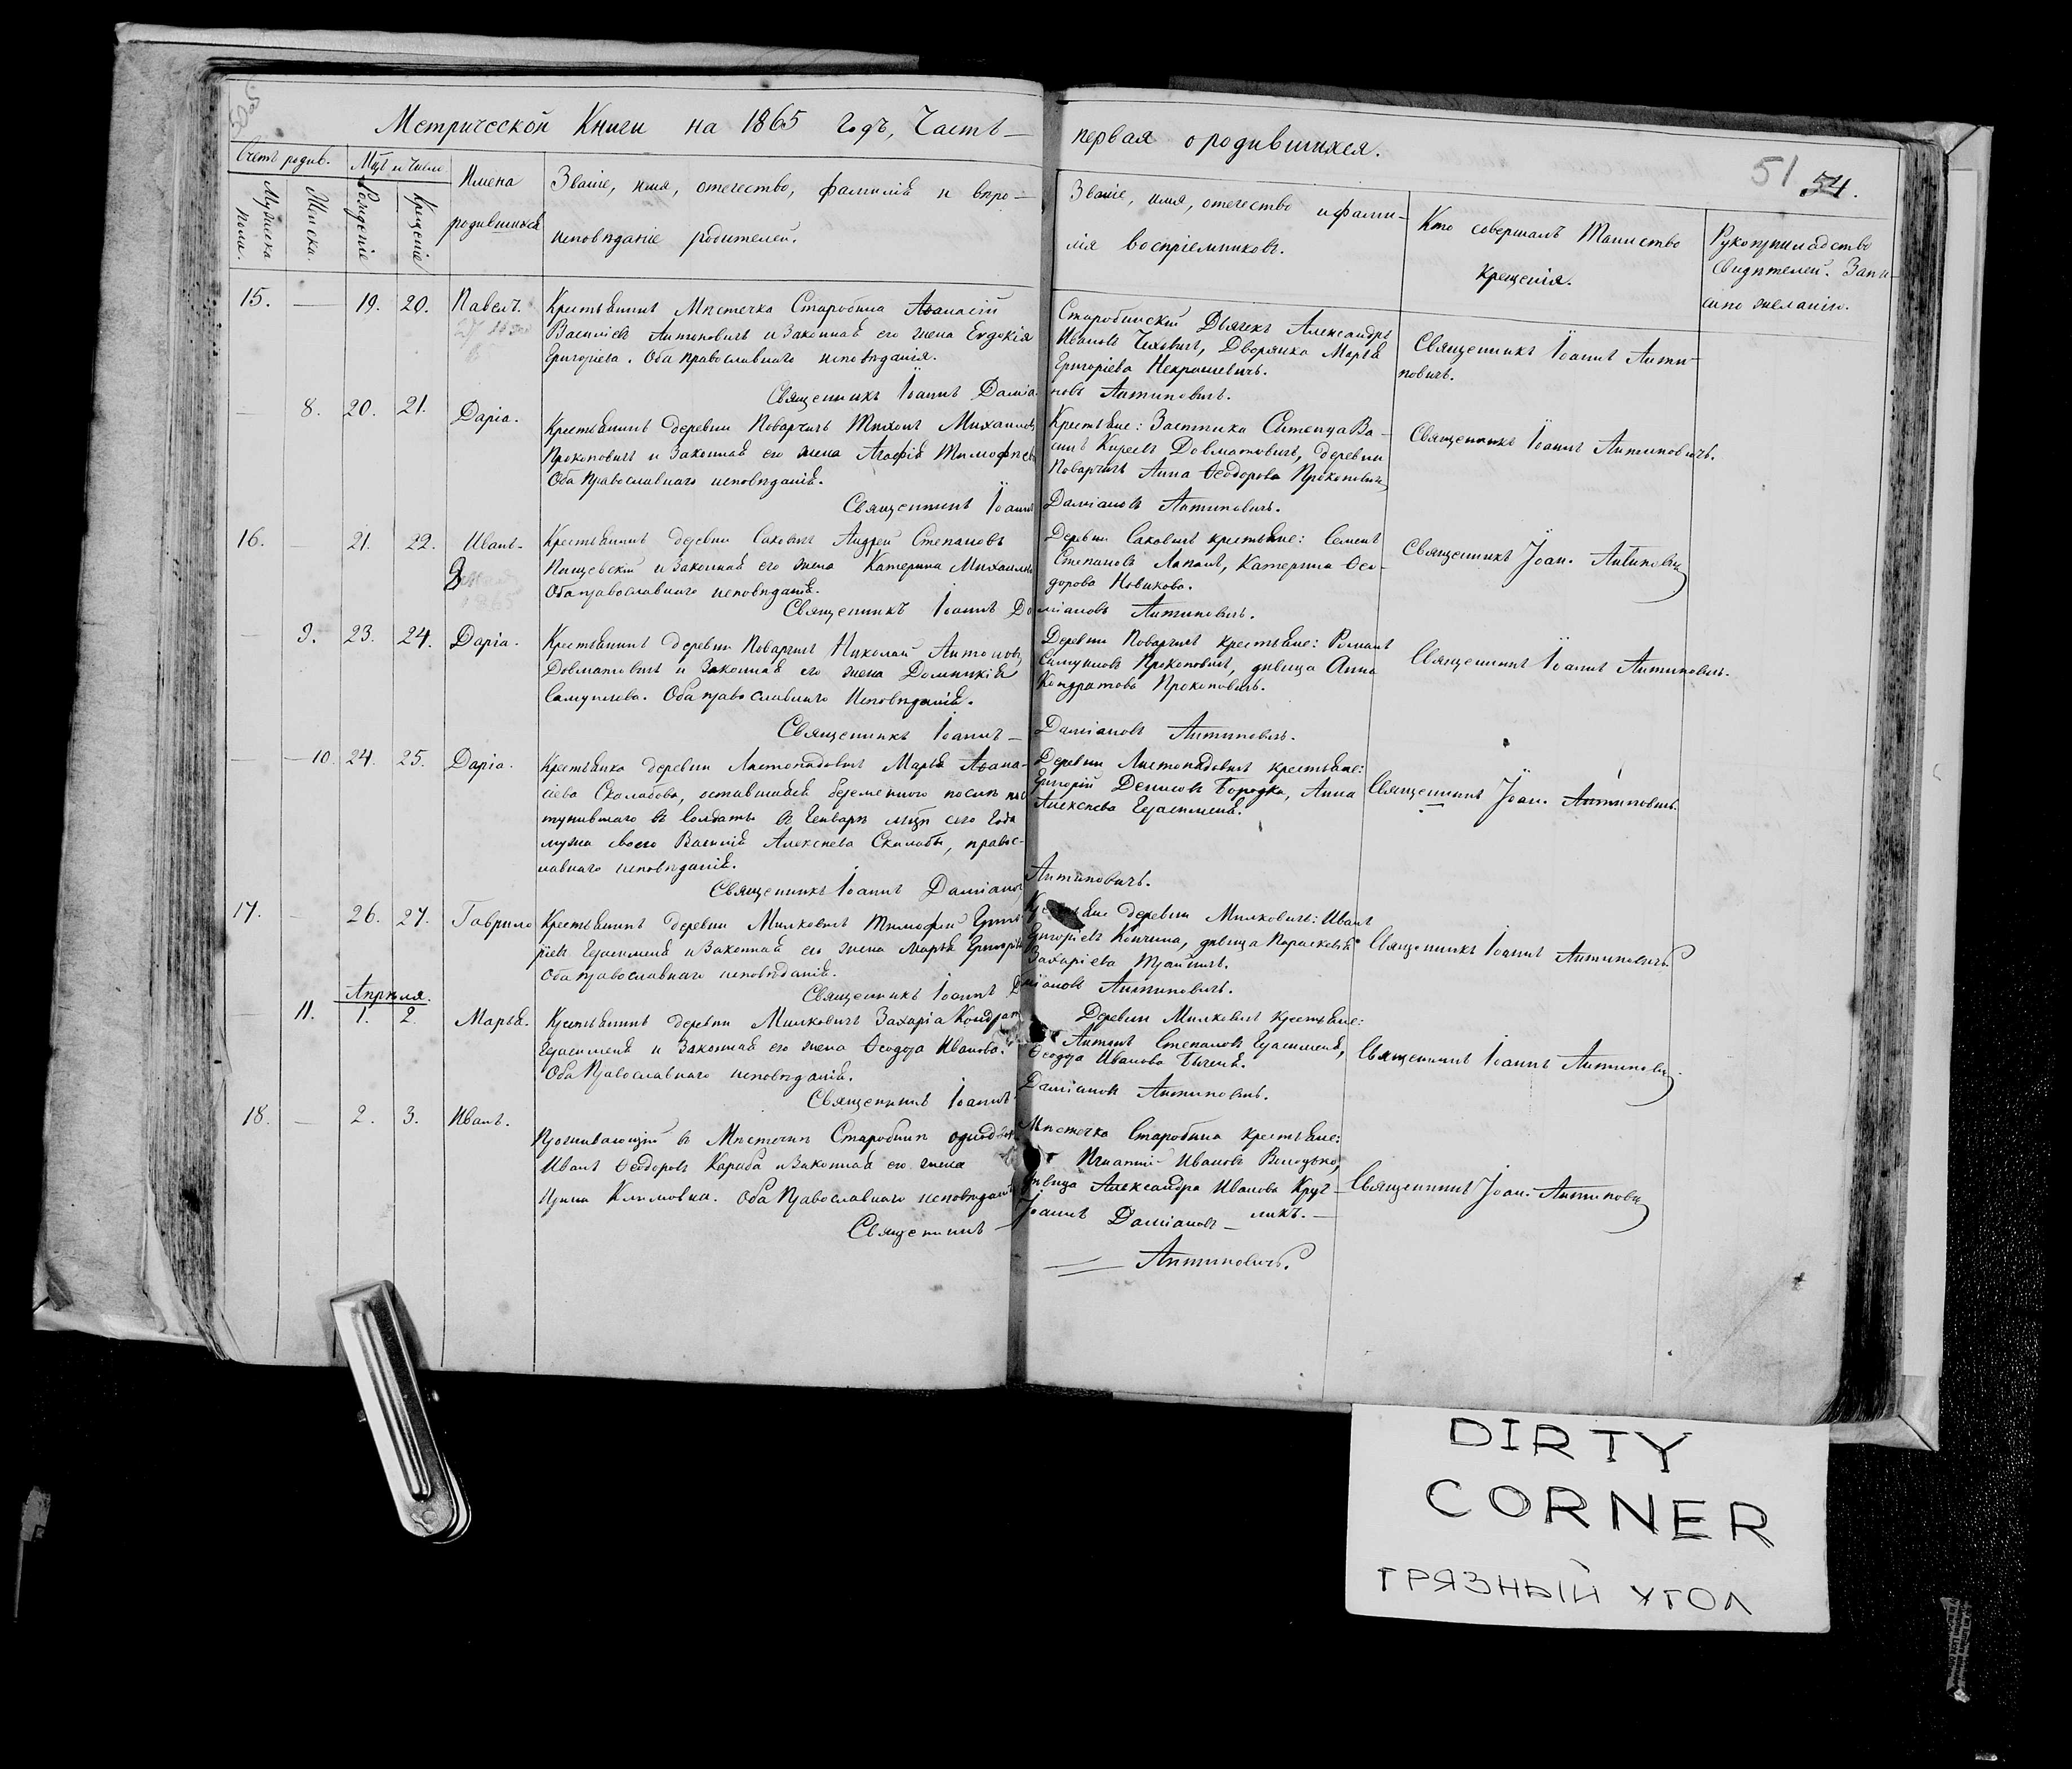 Метрической Книги на 1865 Годъ, Часть —
первая о родившихся.
51 54.
Счетъ родив.
Мцъ и число
Имена
родившихся
Званіе, имя, отечество, фамилія и вѣро-
исповѣданіе родителей.
Мужеска пола.
Женска.
Рожденіе
Крещеніе
Званіе, имя, отечество и фами-
лія воспріемниковъ.
Кто совершалъ Таинство
Крещенія.
Рукоприкладство
свидѣтелей. Запи-
си по желанію.
15. — 19. 20. Павелъ.
Крестьянинъ Мѣстечка Старобина Аѳанасій
Василіевъ Антиповичъ и Законная его жена Евдокія
Григоріева. Оба православнаго исповѣданія.
Священникъ Іоаннъ Даміа
Старобинскій Дьячекъ Александръ
Ивановъ Чиховичъ, Дворянка Марья
Григоріева Некрашевичъ.
новъ Антиповичъ.
Священникъ Іоаннъ Анти-
повичъ.
— 8. 20. 21. Дарія.
Крестьянинъ деревни Поварчичъ Тихонъ Михаиловъ
Прокоповичъ и Законная его жена Агафія Тимофеева
Оба Православнаго исповѣданія.
Священникъ Іоаннъ
Крестьяне: Ва-
силь Киреевъ Довматовичъ, деревни
Поварчичъ Анна Ѳеодорова Прокоповичъ
Даміановъ Антиповичъ.
Священникъ Іоаннъ Антиповичъ.
16. — 21. 22. Иванъ.
1865
Крестьянинъ деревни Саковичъ Андрей Степановъ
и Законная его жена Катерина Михаилова
Оба православнаго исповѣданія.
Священникъ Іоаннъ Да
Деревни Саковичъ крестьяне: Семенъ
Степановъ Лапанъ, Катерина Ѳео-
дорова Новикова.
міановъ Антиповичъ.
Священникъ Іоан. Антиповичъ
— 9. 23. 24. Дарія.
Крестьянинъ деревни Поварчичъ Николай Антоновъ
Довматовичъ и Законная его жена Домникія
Самуилева. Оба православнаго Исповѣданія.
Священникъ Іоаннъ —
Деревни Поварчичъ крестьяне: Романъ
Самуиловъ Прокоповичъ, дѣвица Анна
Кондратова Прокоповичъ.
Даміановъ Антиповичъ.
Священникъ Іоаннъ Антиповичъ.
— 10. 24. 25. Дарія.
Крестьянка деревни Листопадовичъ Марья Аѳана-
сіева Скалабова, оставшаяся беременною послѣ пос
тупившаго въ Солдаты въ Генварѣ мцѣ сего Года
мужа своего Василія Алексѣева Скалабы, правос-
лавнаго исповѣданія.
Священникъ Іоаннъ Даміановъ
Деревни Листопадовичъ крестьяне:
Григорій Денисовъ Бородка, Анна
Алексѣева Герасименя.
Антиповичъ.
Священникъ Іоан. Антиповичъ.
17. — 26. 27. Гаврило
Крестьянинъ деревни Милковичъ Тимофей Григо-
ріевъ Герасименя и Законная его жена Марья Григоріева
Оба православнаго исповѣданія.
Священникъ Іоаннъ Да
Крестьяне деревни Милковичъ: Иванъ
Григоріевъ Кончина, дѣвица Параскевія
Захаріева
міановъ Антиповичъ.
Священникъ Іоаннъ Антиповичъ
Апрѣля.
— 11. 1. 2. Марья.
Крестьянинъ деревни Милковичъ Захарія Кондрат
Герасименя и Законная его жена Ѳеодора Иванова.
Оба Православнаго исповѣданія.
Священникъ Іоаннъ
Деревни Милковичъ крестьяне:
Антонъ Степановъ Герасименя,
Ѳеодора Иванова
Даміановъ Антиповичъ.
Священникъ Іоаннъ Антиповичъ.
18. — 2. 3. Иванъ.
Проживающій въ Мѣстечкѣ Старобинѣ однод
Иванъ Ѳеодоровъ Караба и Законная его жена
Ирина Климовна. Оба Православнаго исповѣданія
Священникъ —
Мѣстечка Старобина крестьяне:
Игнатій Ивановъ Володько,
дѣвица Александра Иванова Круг-
ликъ. —
Іоаннъ Даміановъ —
Антиповичъ.
Священникъ Іоан. Антиповичъ
DIRTY
CORNER
ГРЯЗНЫЙ УГОЛ